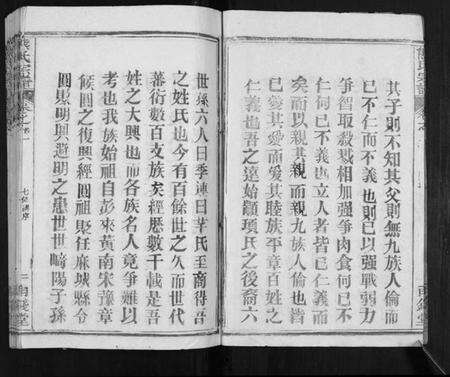 其子則不知其父則無九族人倫而
已不仁而不義也則已以強戰弱力
爭智取殺戮相加強爭肉食何已不
仁何已不義也立人者皆人仁義而
矣而以親其親而親九族人倫也皆
已愛其愛而愛其睦族平章百姓之
仁義也吾之遠始顓頊氏之後裔六
世孫六人曰季連曰羋氏至商得吾
之姓氏也今有百餘世之久而世代
蕃衍數百支族矣經歷數千載是吾
姓之大興也而各族名人竟爭難以
考也我族始祖自彭來黃南宋豫章
候圓之復興經圓祖駁任麻城縣令
圓駁明興避明之患世世崎陽子孫
熊氏宗譜
卷之首一
七修譜序
二